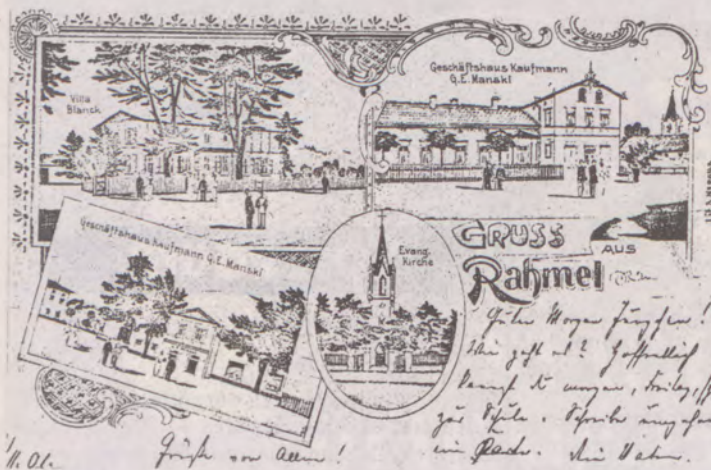 Villa
Blanck
Geschäftshaus Kaufmann
G.E. Manski
Geschäftshaus Kaufmann G.E. Manski
Evang.
Kirche
GRUSS
AUS
Rahmel
Guten Morgen Jungchen!
Wie geht es? Hoffentlich
kannst du morgen, Freitag,
zur Schule. Schreibe umgehend
eine Karte. Dein Vater.
Grüße von allen!
01.